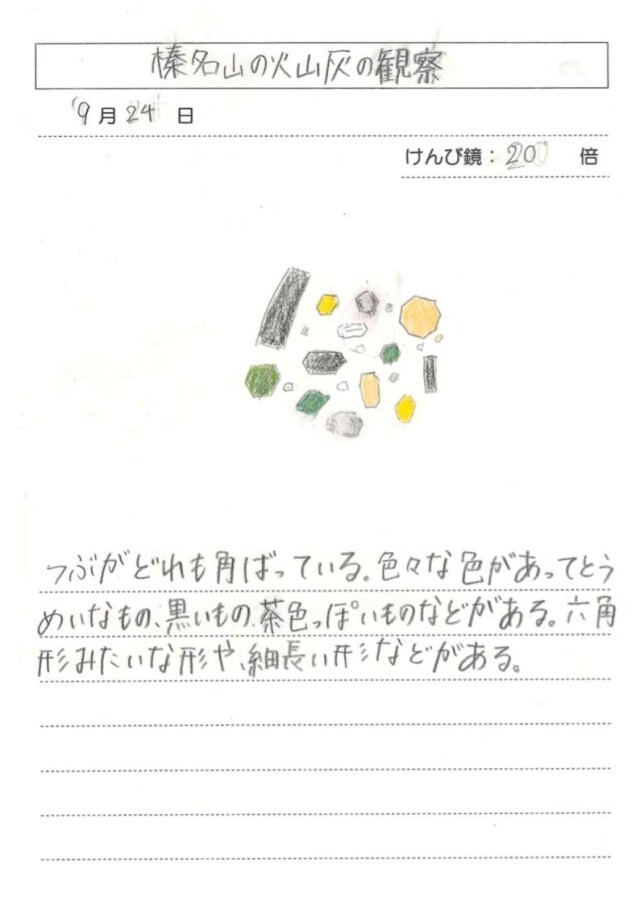 榛名山の火山灰の観察
9月24日
けんび鏡：20倍
つぶがどれも角ばっている。色々な色があってとう
めいなもの、黒いもの、茶色っぽいものなどがある。六角
形みたいな形や、細長い形などがある。